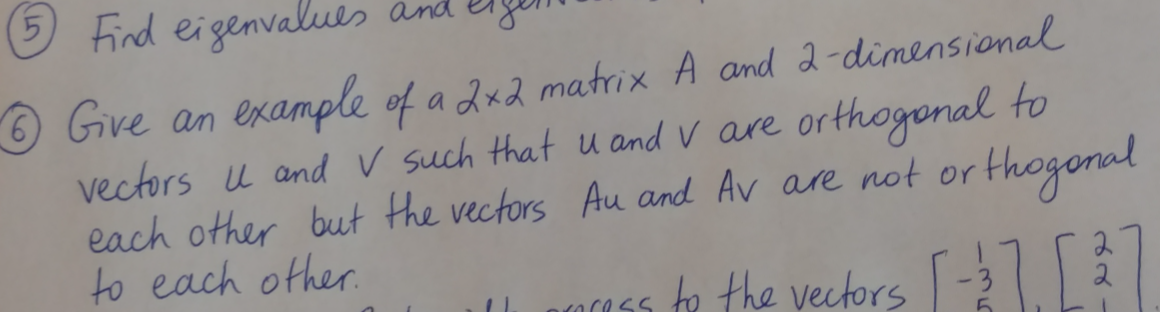 ⑤ Find eigenvalues and
⑥ Give an example of a 2×2 matrix A and 2-dimensional
vectors u and v such that u and v are orthogonal to
each other but the vectors Au and Av are not orthogonal
to each other.
process to the vectors [1 -3 5], [2 2 1]